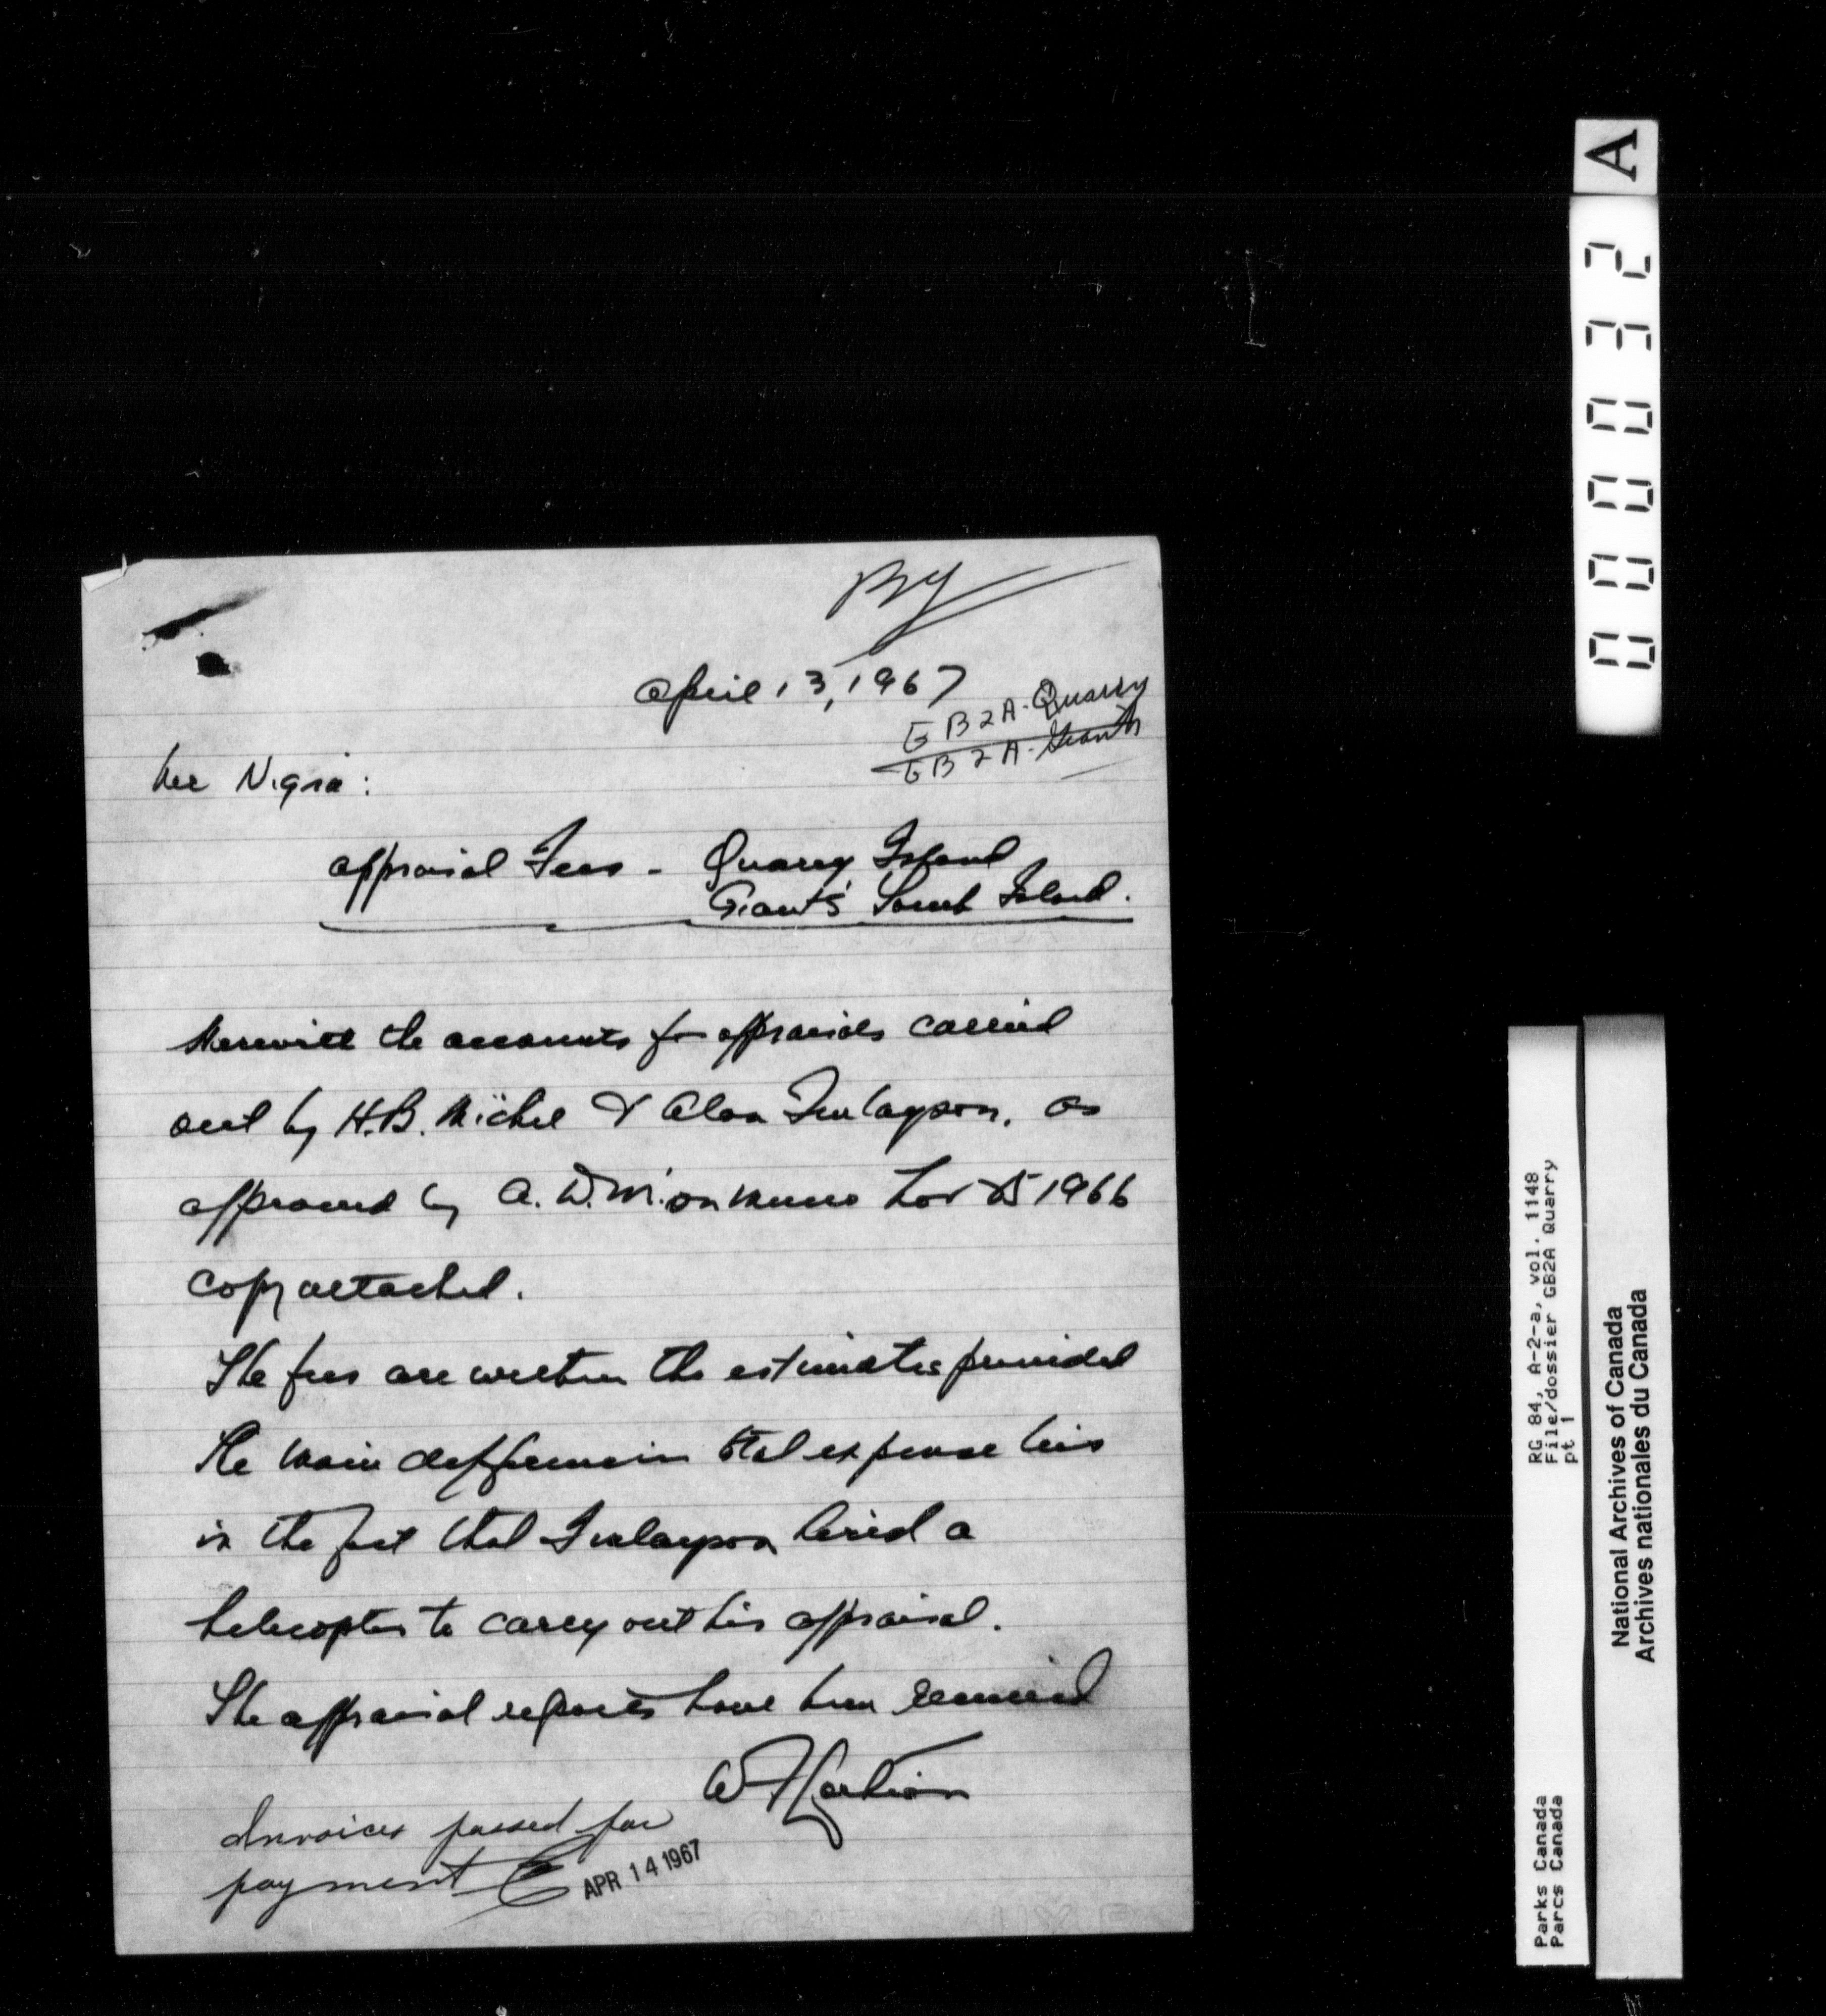 April 13, 1967
GB2A-Quarry
GB2A-Giants
Mr Nigra:
Appraisal Fees - Quarry Island
Giants Tomb Island.
Herewith the accounts for appraisals carried
out by H.B. Michel & Alan Finlayson, as
approved by A. D. M. on memo Nov 25 1966
copy attached.
The fees are within the estimates provided
The main difference in total expense lies
in the fact that Finlayson hired a
helicopter to carry out his appraisal.
The appraisal reports have been received
Invoices passed for
payment
APR 14 1967
A
000032
RG 84, A-2-a, vol. 1148
File/dossier GB2A Quarry
pt 1
Parks Canada
Parcs Canada
National Archives of Canada
Archives nationales du Canada